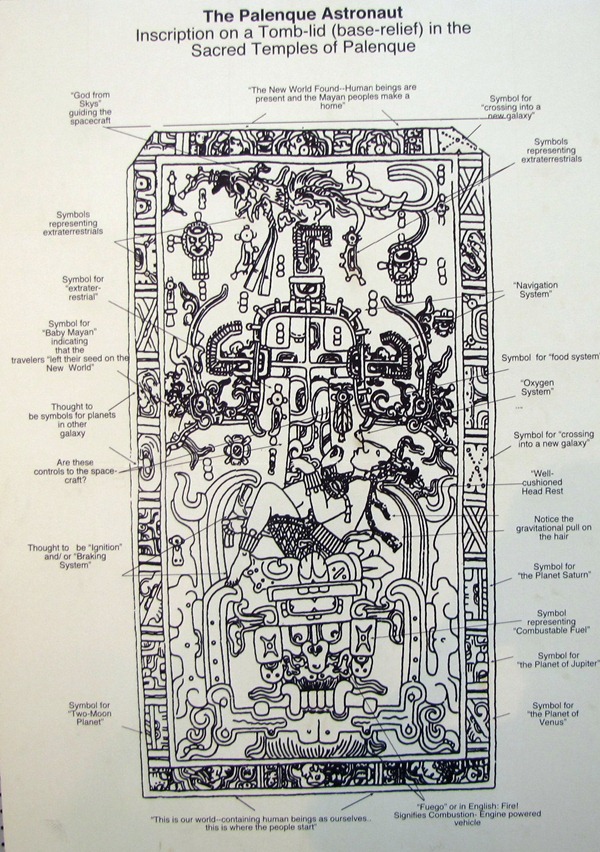 The Palenque Astronaut
Inscription on a Tomb-lid (base-relief) in the
Sacred Temples of Palenque
"God from
Skys"
guiding the
spacecraft
"The New World Found--Human beings are
present and the Mayan peoples make a
home"
Symbol for
"crossing into a
new galaxy"
Symbols
representing
extraterrestrials
Symbols
representing
extraterrestrials
Symbol for
"extrater-
restrial"
"Navigation
System"
Symbol for
"Baby Mayan"
indicating
that the
travelers "left their seed on the
New World"
Symbol for "food system"
"Oxygen
System"
Thought to
be symbols for planets
in other
galaxy
Symbol for "crossing
into a new galaxy"
Are these
controls to the space-
craft?
"Well-
cushioned
Head Rest
Notice the
gravitational pull on
the hair
Thought to be "Ignition"
and/ or "Braking
System"
Symbol for
"the Planet Saturn"
Symbol
representing
"Combustable Fuel"
Symbol for
"the Planet of Jupiter"
Symbol for
"Two-Moon
Planet"
Symbol for
"the Planet of
Venus"
"Fuego" or in English: Fire!
Signifies Combustion- Engine powered
vehicle
"This is our world--containing human beings as ourselves..
this is where the people start"